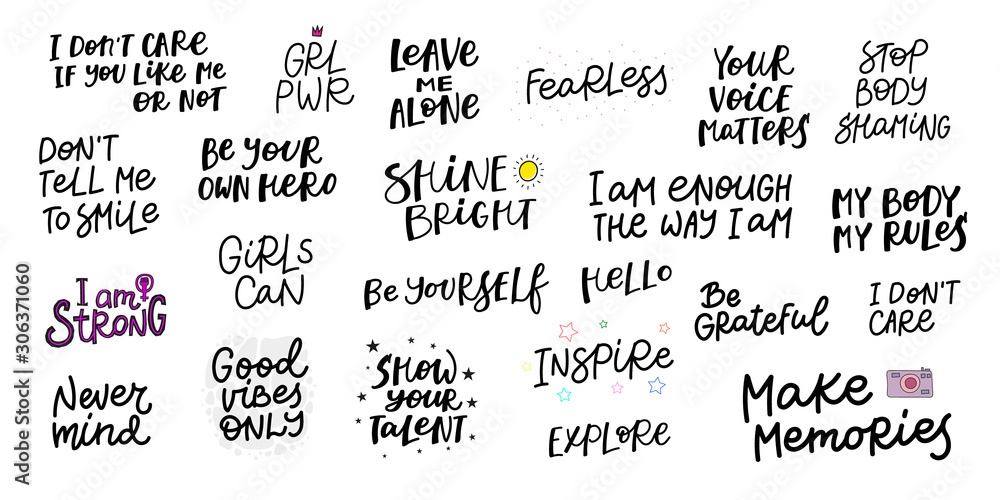 I DON'T CARE
IF YOU LIKE ME
OR NOT
GRL
PWR
LEAVE
ME
ALONE
FEARLESS
YOUR
VOICE
MATTERS
STOP
BODY
SHAMING
DON'T
TELL ME
TO SMILE
BE YOUR
OWN HERO
SHINE
BRIGHT
I AM ENOUGH
THE WAY I AM
MY BODY
MY RULES
GIRLS
CAN
I am
STRONG
BE YOURSELF
HELLO
Be
Grateful
I DON'T
CARE
Never
mind
Good
vibes
ONLY
SHOW
YOUR
TALENT
INSPIRE
EXPLORE
Make
Memories
Adobe Stock | #306371060
Adobe Stock
Adobe Stock
Adobe Stock